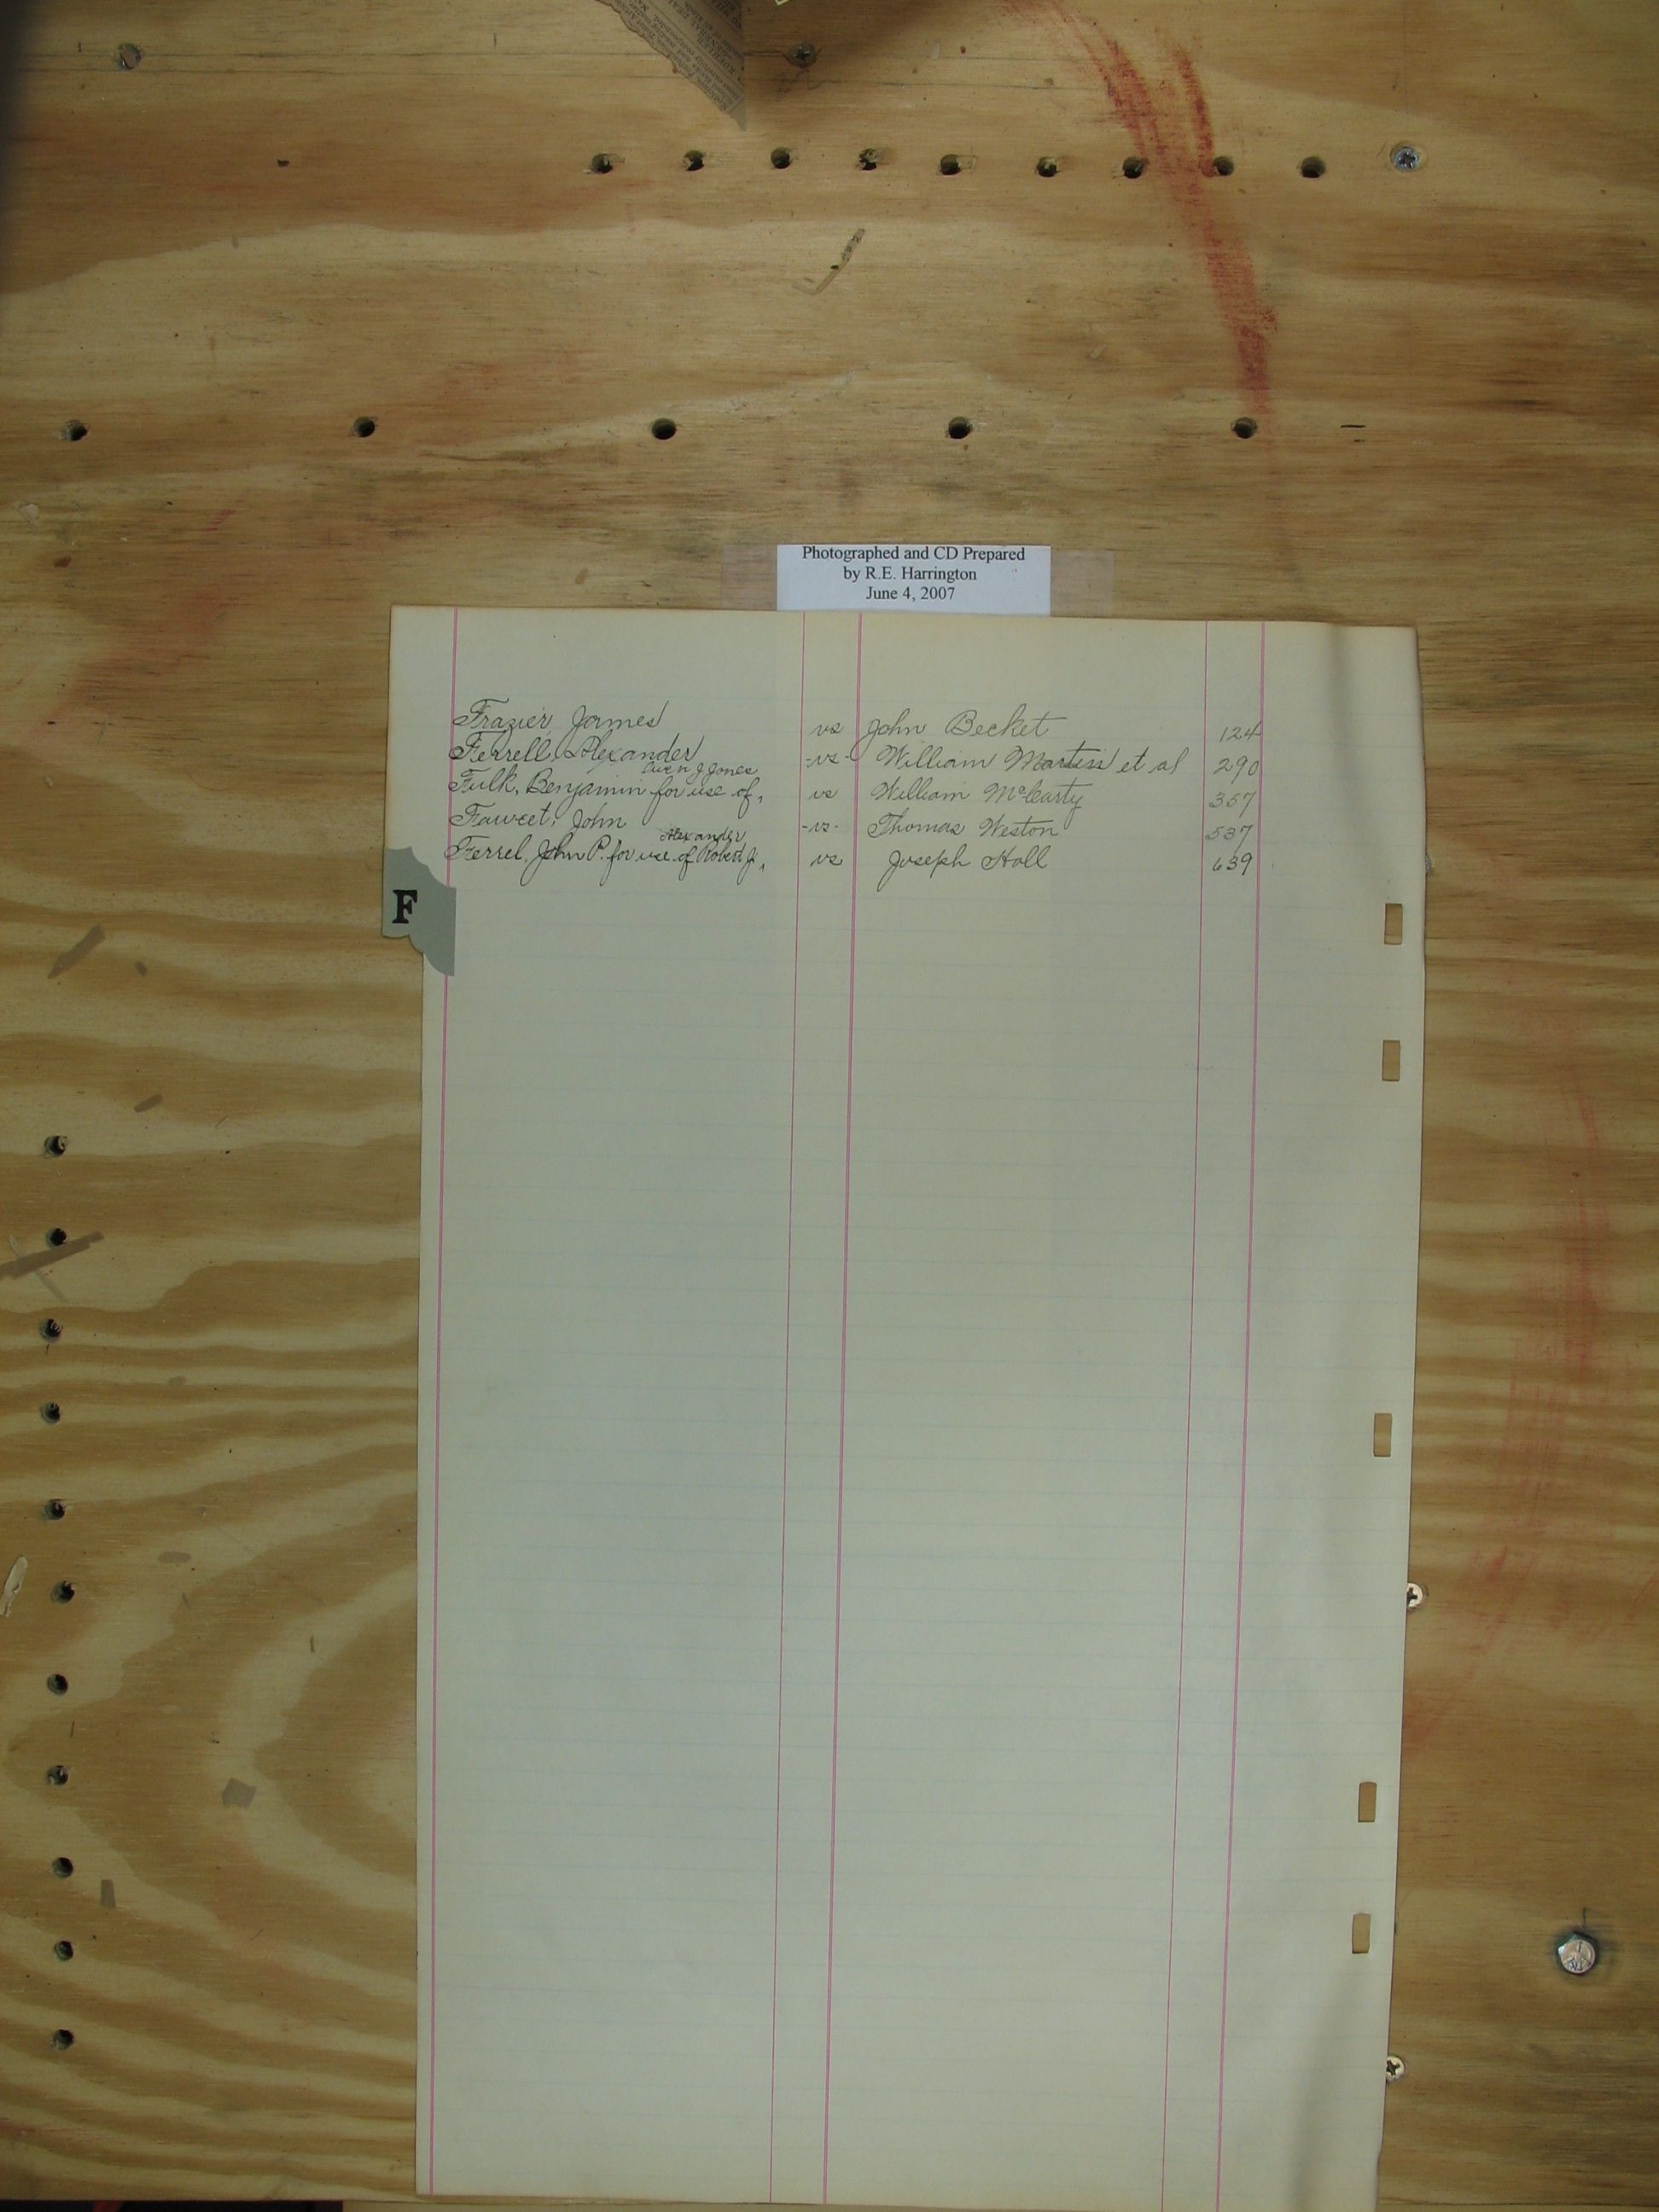 Photographed and CD Prepared
by R.E. Harrington
June 4, 2007
Frazier, James vs John Becket 124
Ferrell, Alexander -vs- William Martin et al 290
Owen J Jones
Fulk, Benjamin for use of, vs William McCarty 357
Fawcet, John -vs- Thomas Weston 537
Alexander
Ferrel, John P. for use of Robert J, vs Joseph Hall 639
F